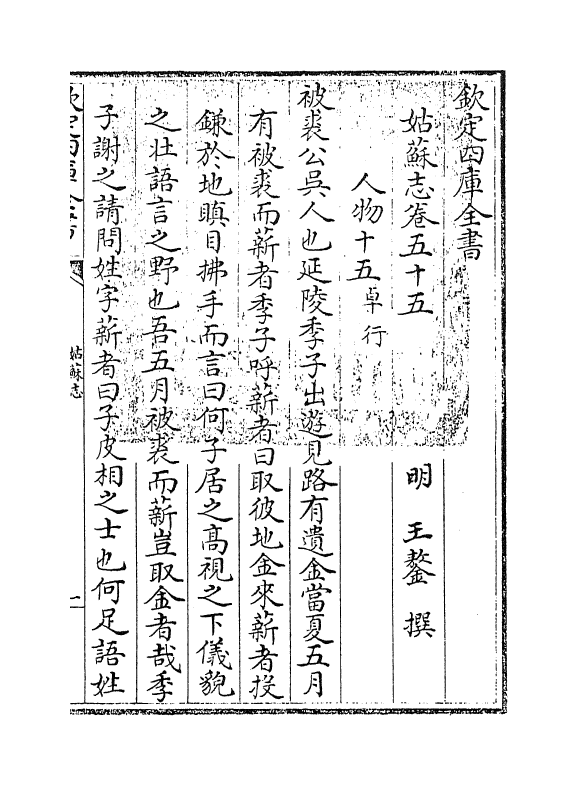 欽定四庫全書
姑蘇志卷五十五
明 王鏊 撰
人物十五卓行
被裘公吳人也延陵季子出遊見路有遺金當夏五月
有被裘而薪者季子呼薪者曰取彼地金來薪者投
鎌於地瞋目拂手而言曰何子居之高視之下儀貌
之壯語言之野也吾五月被裘而薪豈取金者哉季
子謝之請問姓字薪者曰子皮相之士也何足語姓
姑蘇志
一